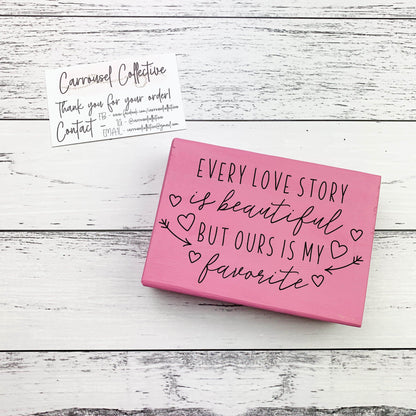 Carrousel Collective
Thank you for your order!
Contact -
IG - @carrouselcollective
EMAIL - carrouselcollective@gmail.com
EVERY LOVE STORY
is beautiful
BUT OURS IS MY
favorite